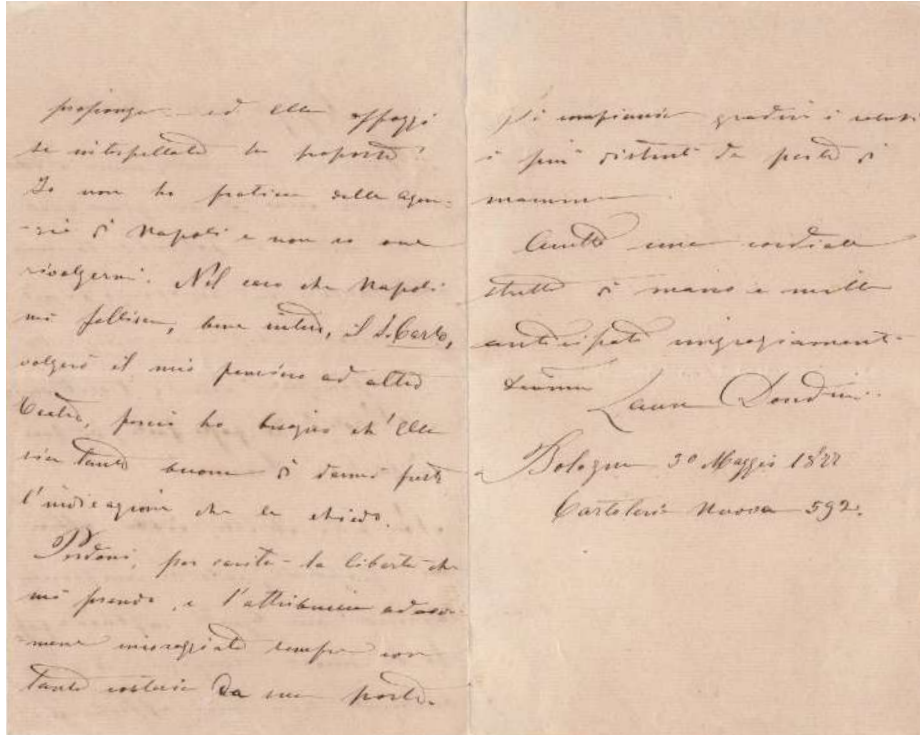 proponga - ed Ella appoggi
se interpellato la proposta?
Io non ho pratica delle agen-
-zie di Napoli e non so ove
rivolgermi. Nel caso che Napoli
mi fallisca, bene inteso, il S. Carlo,
volgerò il mio pensiero ad altro
Teatro, perciò ho bisogno ch'Ella
sia tanto buona di darmi presto
l'indicazione che le chiedo.
Perdoni, per carità - la libertà che
mi prendo, e l'attribuisca ad
sempre con
tanta da sua parte.
gradisci i saluti
i più distinti da parte di
mamma
Accetti una cordiale
stretta di mano e mille
anticipati ringraziamenti
Laura Dondini.
Bologna 30 Maggio 1877
Cartoleria Nuova 592.